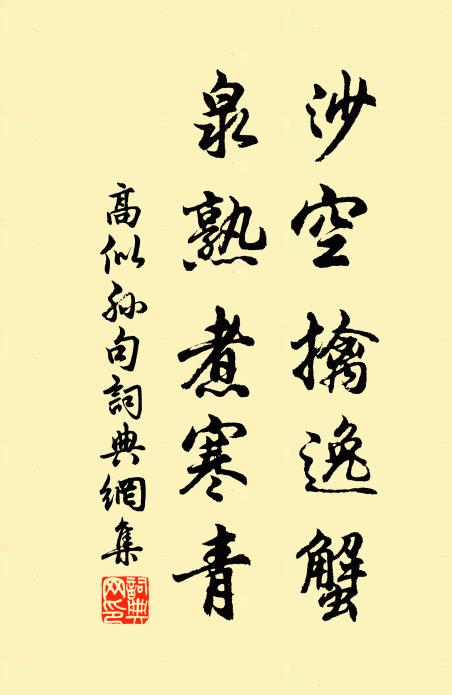 沙空擒逸蟹
泉熟煮寒青
高似孙句詞典網集
詞典网印